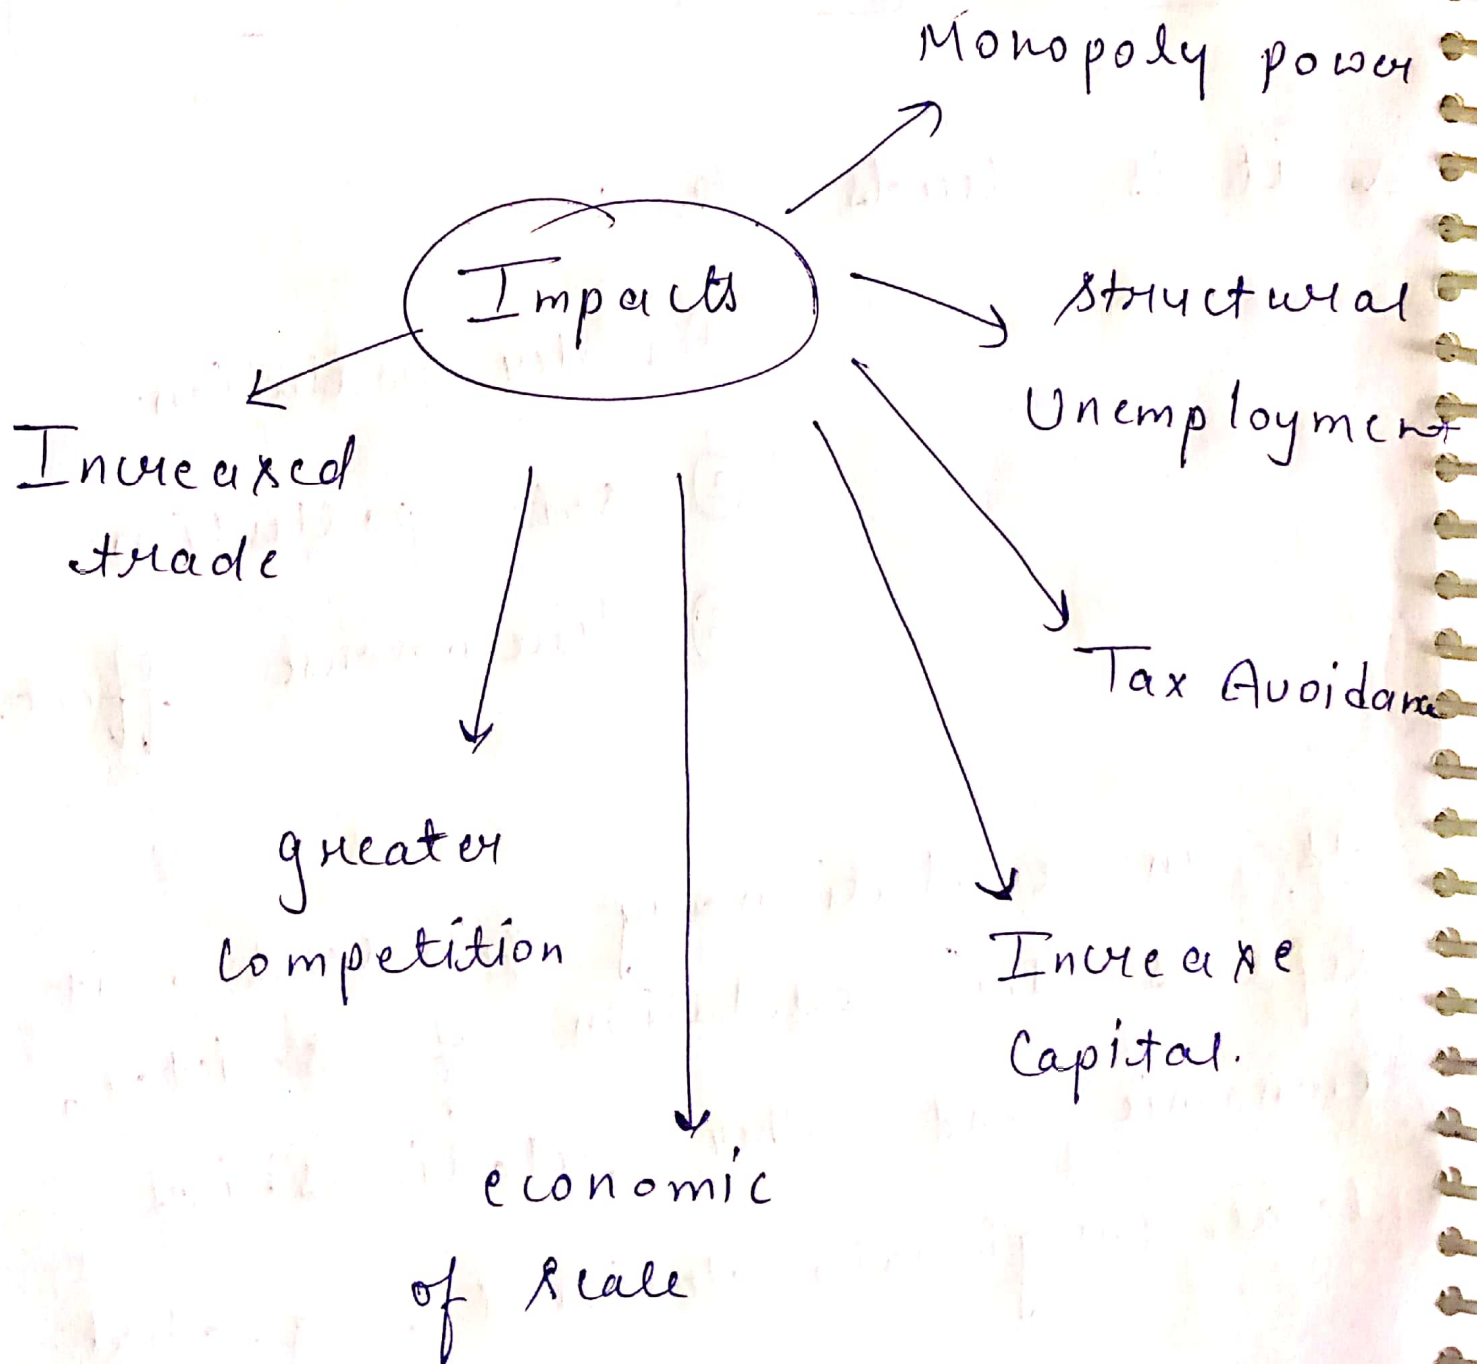 Monopoly power
Impacts
structural
Unemployment
Increased
trade
Tax Avoidance
greater
competition
Increase
Capital.
economic
of scale